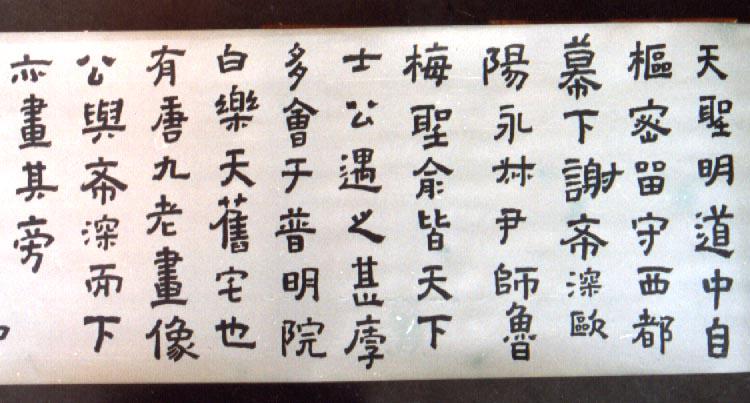 天聖明道中自
樞密留守西都
幕下謝希深歐
陽永叔尹師魯
梅聖俞皆天下
士公遇之甚厚
多會于普明院
白樂天舊宅也
有唐九老畫像
公與希深而下
亦畫其旁